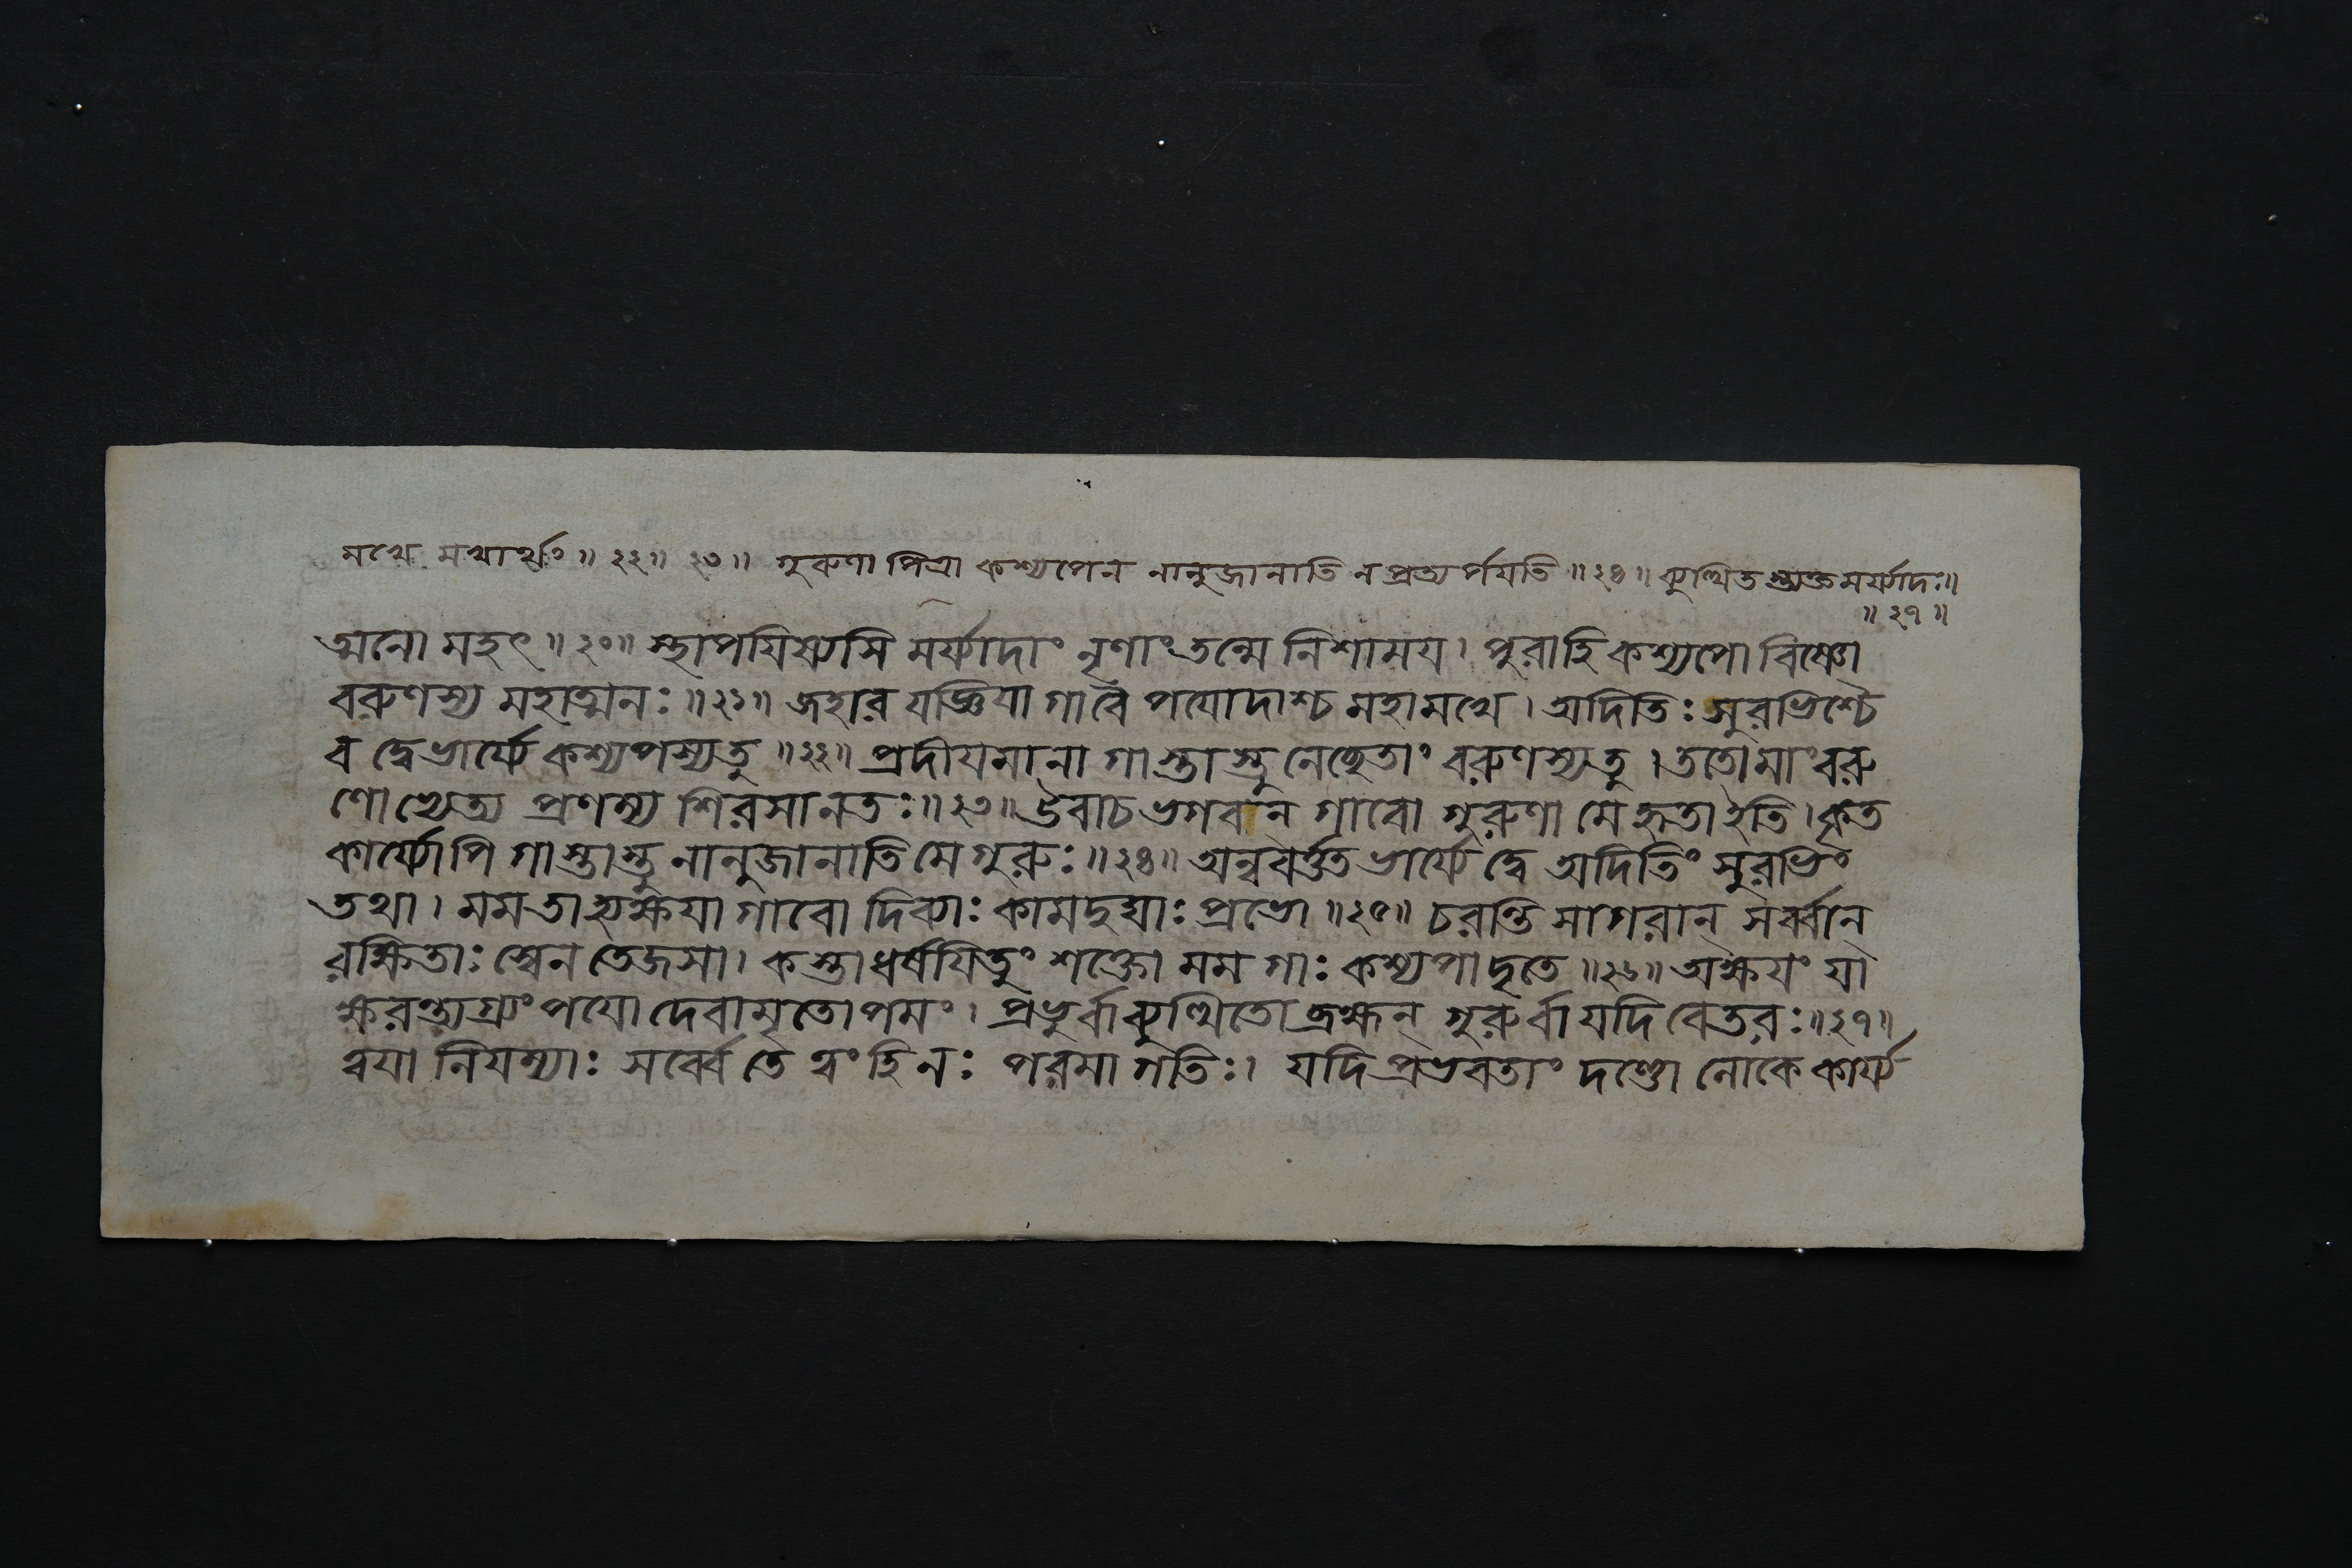 মখে মখার্থং ॥ ২২ ॥ ২৩ ॥ গুরুণা পিত্রা কশ্যপেন নানুজানাতি ন প্রত্যর্পয়তি ॥ ২৪ ॥ ব্যুত্থিতস্ত্যক্তমর্য্যাদঃ ॥
॥ ২৭ ॥
ত্মনো মহৎ ॥ ২০ ॥ স্থাপয়িষ্যসি মর্য্যাদাং নৃণাং তন্মে নিশাময় । পুরা হি কশ্যপো বিষ্ণো
বরুণস্য মহাত্মনঃ ॥ ২১ ॥ জহার যজ্ঞিয়া গা বৈ পয়োদাশ্চ মহামখে । অদিতিঃ সুরভিশ্চৈ
ব দ্বে ভার্য্যে কশ্যপস্য তু ॥ ২২ ॥ প্রদীয়মানা গাস্তাস্তু নেচ্ছেতাং বরুণস্য তু । ততো মাং বরু
ণোভ্যেত্য প্রণম্য শিরসা নতঃ ॥ ২৩ ॥ উবাচ ভগবান্ গাবো গুরুণা মে হৃতা ইতি । কৃত
কার্য্যোপি গাস্তাস্তু নানুজানাতি মে গুরুঃ ॥ ২৪ ॥ অন্ববর্ত্তত ভার্য্যে দ্বে অদিতিং সুরভিং
তথা । মম তা হ্যক্ষয়া গাবো দিব্যাঃ কামদুঘাঃ প্রভো ॥ ২৫ ॥ চরন্তি সাগরান্ সর্ব্বান্
রক্ষিতাঃ স্বেন তেজসা । কস্তা ধর্ষয়িতুং শক্তো মম গাঃ কশ্যপাদৃতে ॥ ২৬ ॥ অক্ষয়ং যা
ক্ষরন্ত্যগ্র্যং পয়ো দেবামৃতোপমং । প্রভুর্বা ব্যুত্থিতো ব্রহ্মন্ গুরুর্বা যদি বেতরঃ ॥ ২৭ ॥
ত্বয়া নিয়ম্যাঃ সর্ব্বে তে ত্বং হি নঃ পরমা গতিঃ । যদি প্রভবতাং দণ্ডো লোকে কার্য্য